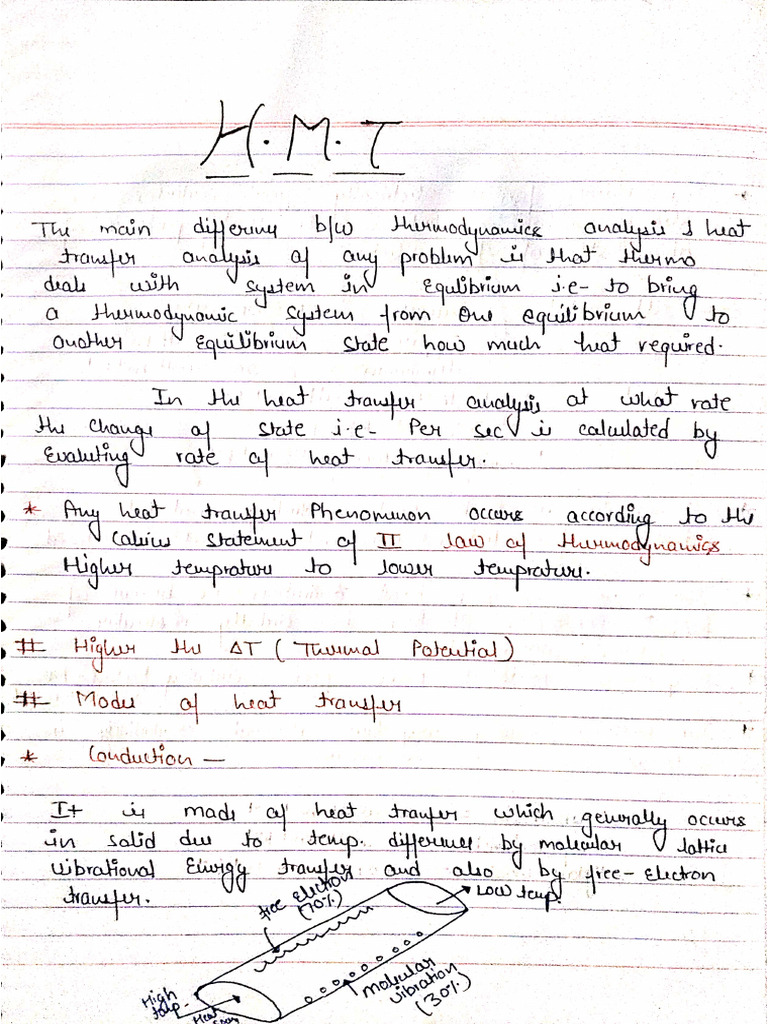 H.M.T
The main differenc b/w thermodynamics analysis & heat
transfer analysis of any problem is that thermo
deals with system in Equlibrium i.e- to bring
a thermodynamic system from one equilibrium to
another Equilibrium state how much heat required.
In the heat transfer analysis at what rate
the change of state i.e- Per sec is calculated by
Evaluting rate of heat transfer.
* Any heat transfer Phenomenon occurs according to the
statement of II law of thermodynamics
Higher temprature to lower temprature.
# Higher the ΔT (Thermal Potential)
# Modes of heat transfer
* Conduction —
It is made of heat tranfer which generally occurs
in solid due to temp. difference by molecular lattic
vibrational Energy transfer and also by free-Electron
transfer.
free Electron
(70%)
Low temp.
High
temp.
Heat
molecular
vibration
(30%)